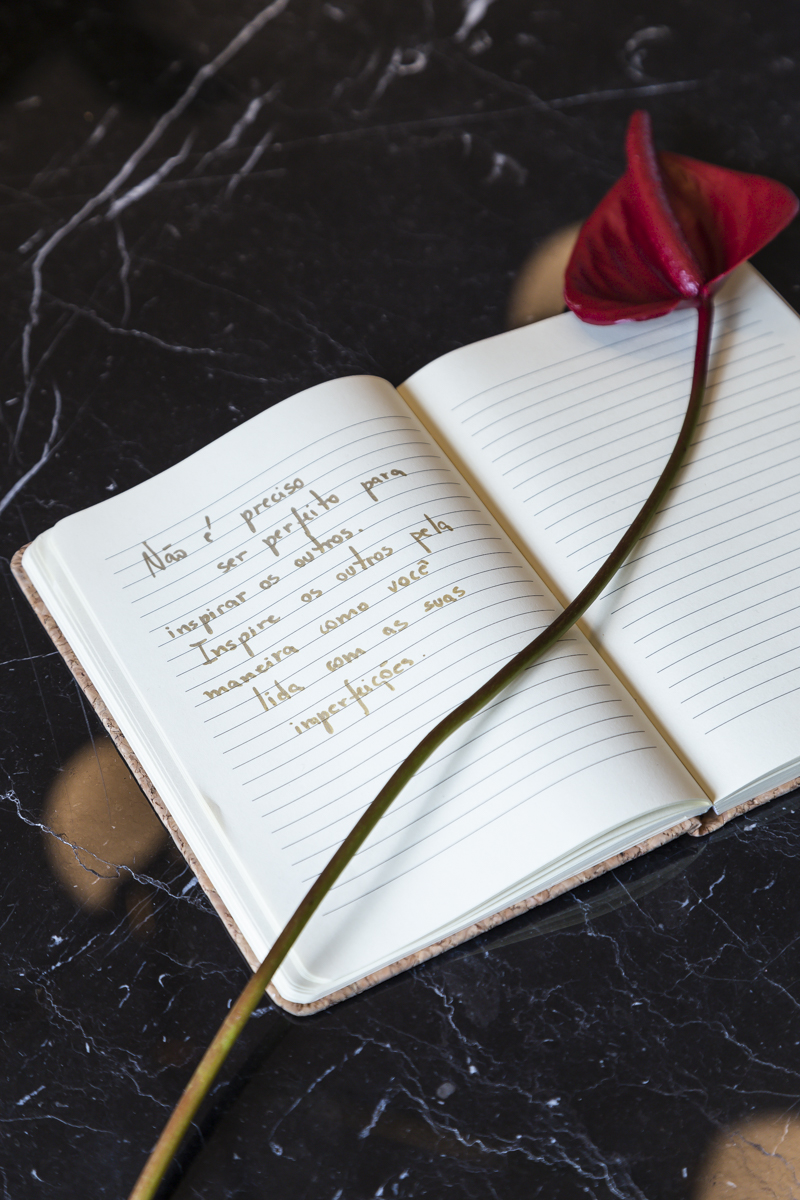 Não é preciso
ser perfeito para
inspirar os outros.
Inspire os outros pela
maneira como você
lida com as suas
imperfeições.